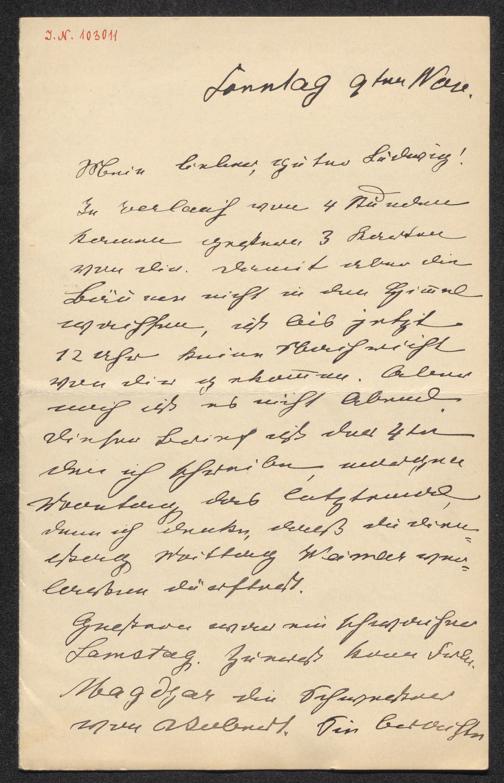 I.N. 103011
Sonntag 9ter Nov.
Mein lieber, guter Ludwig!
In verlauf von 4 Stunden
kamen gestern 3 Karten
von dir. Damit aber die
Bäume nicht in den Himmel
wachsen, ist bis jetzt
12 Uhr keine Nachricht
von dir gekommen. Aber
noch ist es nicht Abend.
Dieser Brief ist der 4te
den ich schreibe, morgen
Montag das letztemal,
denn ich denke, daß du dien-
stag Mittag Weimar ver-
lassen dürftest.
Gestern war ein schwacher
Samstag. Zuerst kam Frln.
Magdzar die Schwester
von Albert. Sie